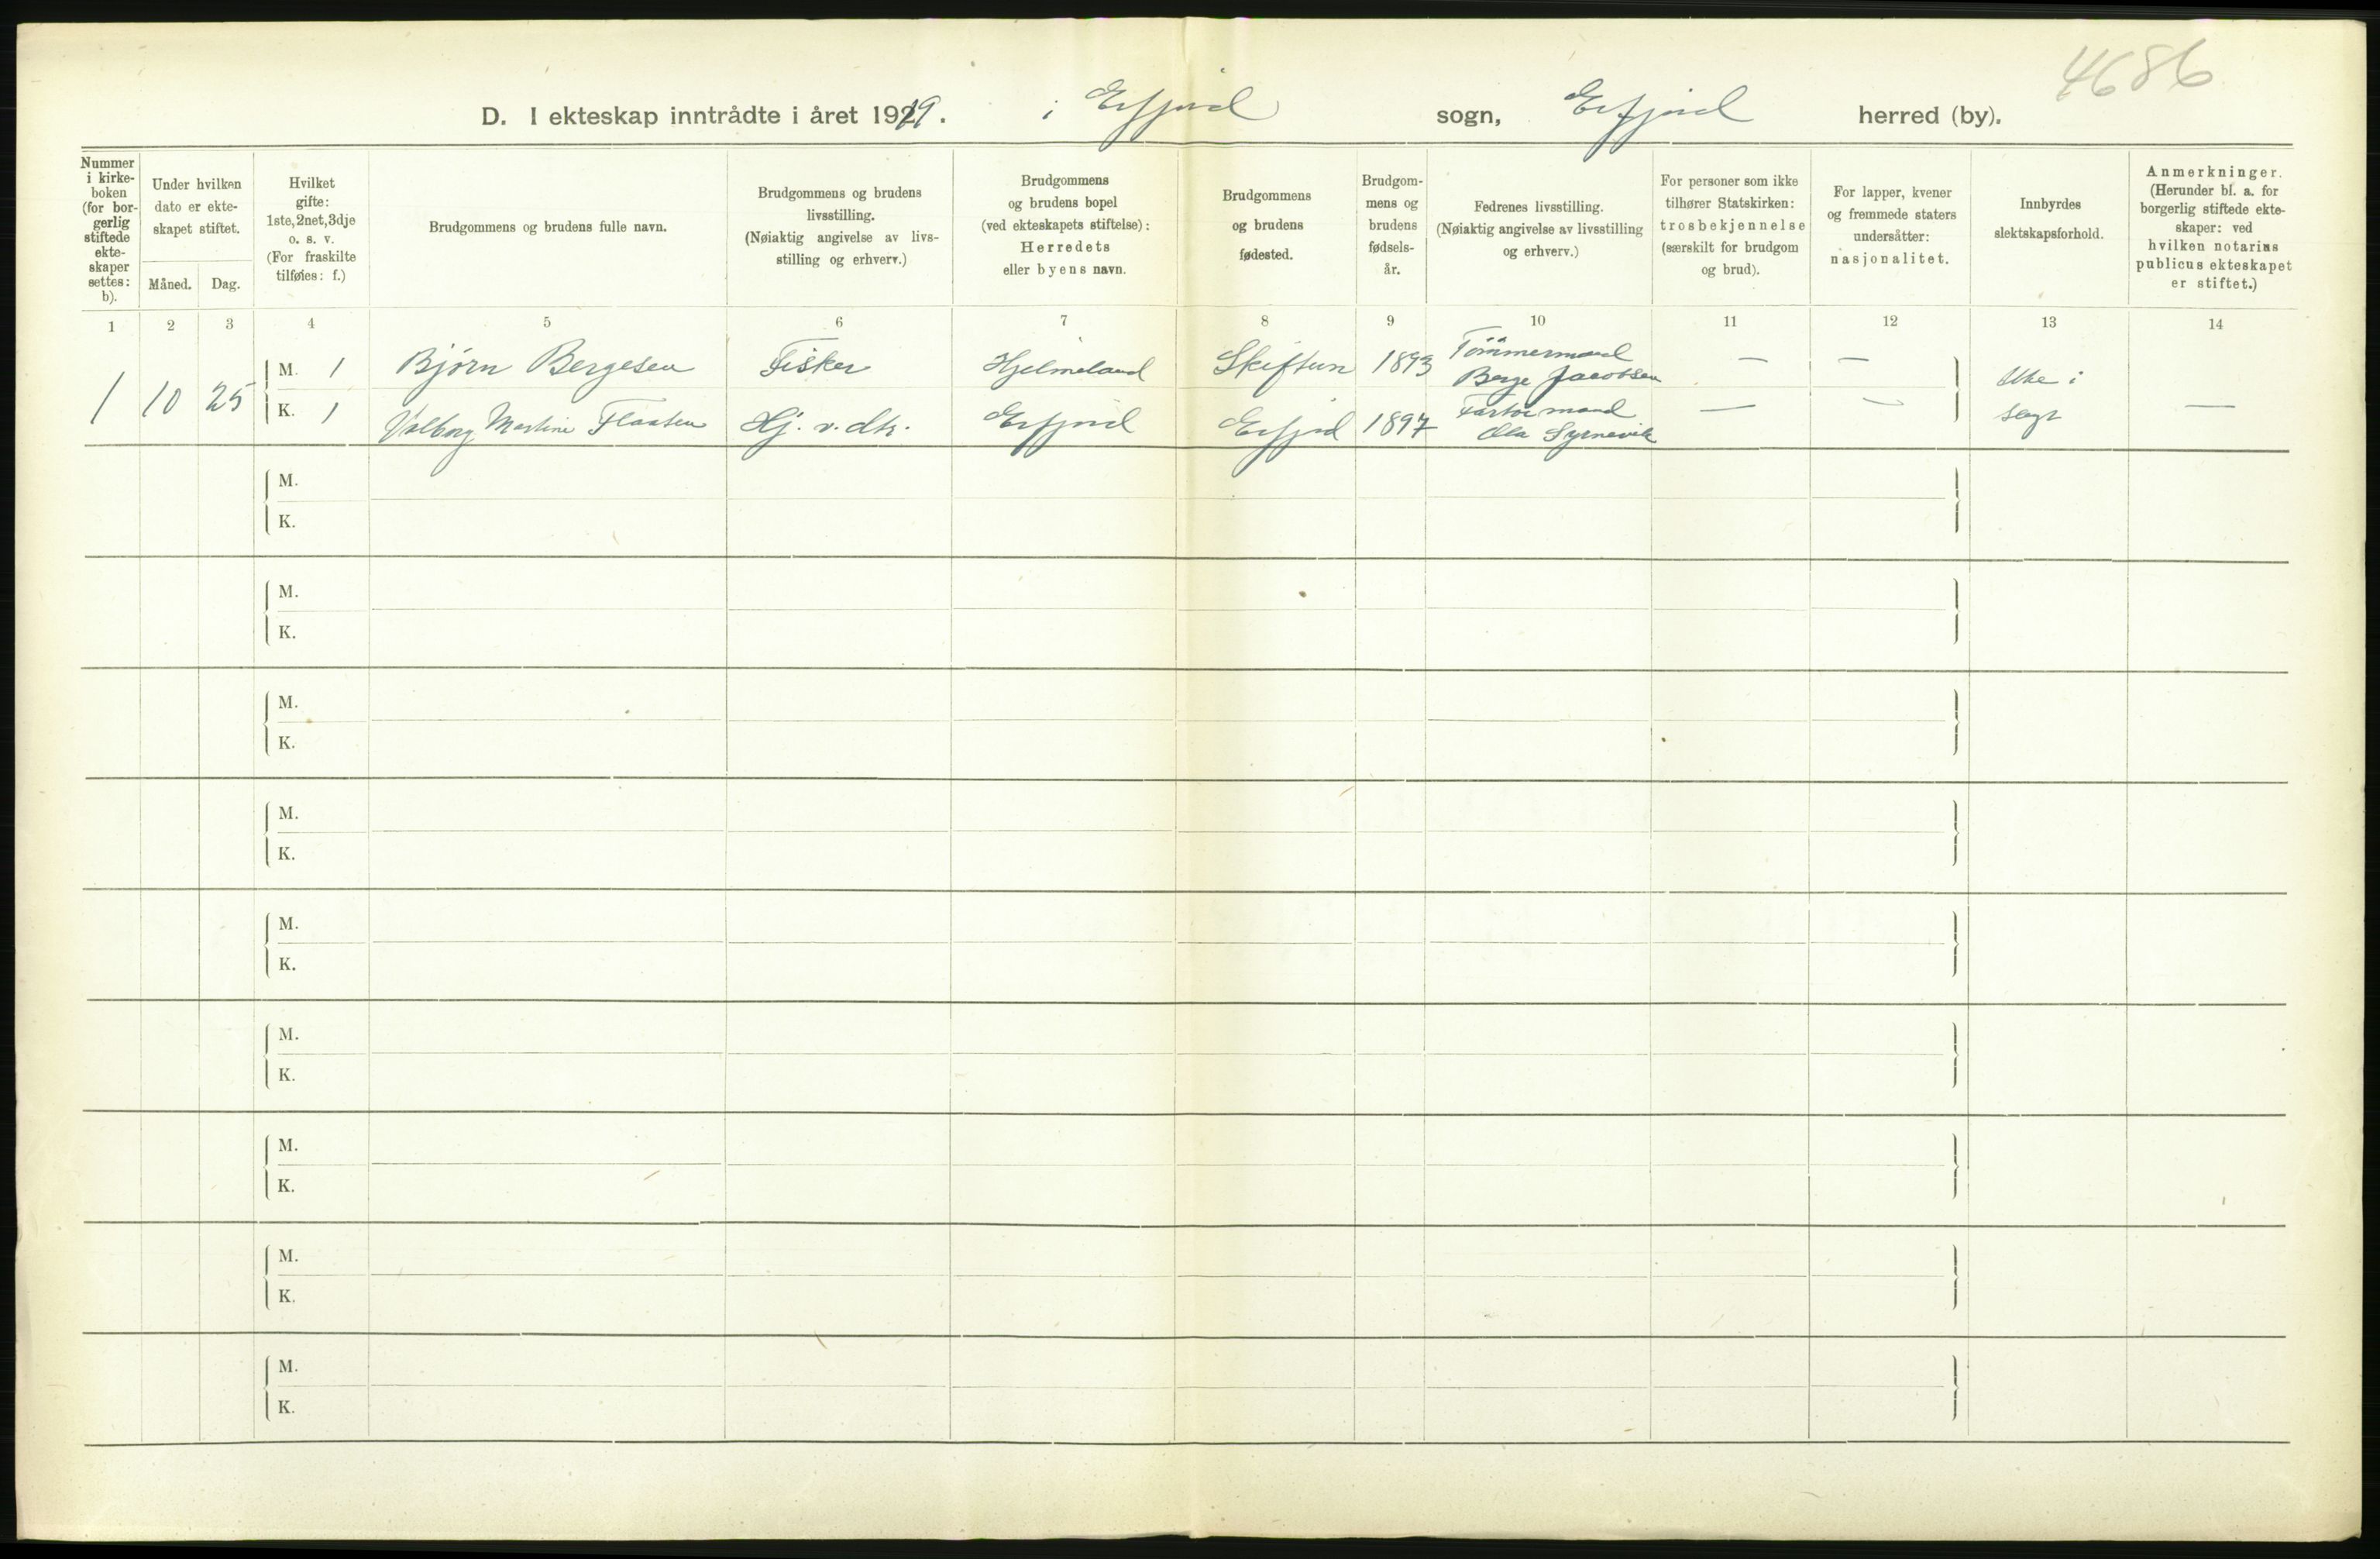 4686
D. I ekteskap inntrådte i året 1919. i Erfjord sogn, Erfjord herred (by).
Nummer i kirke- boken (for bor- gerlig stiftede ekte- skaper settes: b).
Under hvilken dato er ekte- skapet stiftet.
Måned. Dag.
Hvilket gifte: 1ste, 2net, 3dje o. s. v. (For fraskilte tilføies: f.)
Brudgommens og brudens fulle navn.
Brudgommens og brudens livsstilling. (Nøiaktig angivelse av livs- stilling og erhverv.)
Brudgommens og brudens bopel (ved ekteskapets stiftelse): Herredets eller byens navn.
Brudgommens og brudens fødested.
Brudgom- mens og brudens fødsels- år.
Fedrenes livsstilling. (Nøiaktig angivelse av livsstilling og erhverv.)
For personer som ikke tilhører Statskirken: trosbekjennelse (særskilt for brudgom og brud).
For lapper, kvener og fremmede staters undersåtter: nasjonalitet.
Innbyrdes slektskapsforhold.
Anmerkninger. (Herunder bl. a. for borgerlig stiftede ekte- skaper: ved hvilken notarius publicus ekteskapet er stiftet.)
1 2 3 4 5 6 7 8 9 10 11 12 13 14
1 10 25
M. 1 Bjørn Bergesen Fisker Hjelmeland Skiftun 1893 Tömmermand Berge Jacobsen — —
K. 1 Valborg Martine Flaaten Hj. v. dtr. Erfjord Erfjord 1897 mand Ola — —
Ikke i slegt —
M.
K.
M.
K.
M.
K.
M.
K.
M.
K.
M.
K.
M.
K.
M.
K.
M.
K.